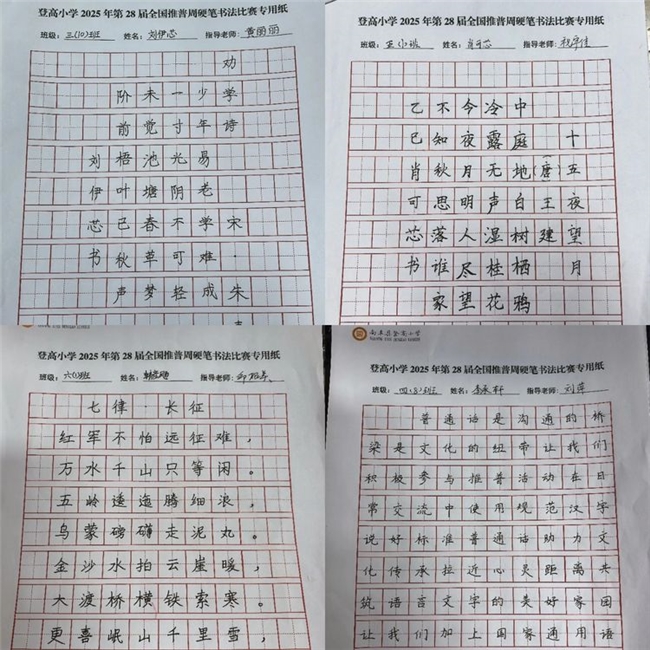 登高小学 2025 年第 28 届全国推普周硬笔书法比赛专用纸
班级：三(10)班 姓名：刘伊芯 指导老师：黄丽丽
劝学诗宋·朱
少年易老学难成
一寸光阴不可轻
未觉池塘春草梦
阶前梧叶已秋声
刘伊芯书
登高小学 2025 年第 28 届全国推普周硬笔书法比赛专用纸
班级： 姓名：肖可芯 指导老师：
十五夜望月
(唐)王建
中庭地白树栖鸦
冷露无声湿桂花
今夜月明人尽望
不知秋思落谁家
乙巳肖可芯书
登高小学 2025 年第 28 届全国推普周硬笔书法比赛专用纸
班级：六(1)班 姓名： 指导老师：
七律·长征
红军不怕远征难，
万水千山只等闲。
五岭逶迤腾细浪，
乌蒙磅礴走泥丸。
金沙水拍云崖暖，
大渡桥横铁索寒。
更喜岷山千里雪，
登高小学 2025 年第 28 届全国推普周硬笔书法比赛专用纸
班级：四(8)班 姓名：李承轩 指导老师：刘萍
普通话是沟通的桥
梁是文化的纽带让我们
积极参与推普活动在日
常交流中使用规范汉字
说好标准普通话助力文
化传承拉近心灵距离共
筑语言文字的美好家园
让我们加上国家通用语